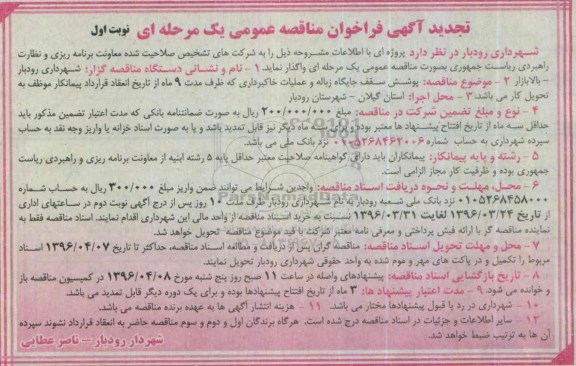 تجدید آگهی فراخوان مناقصه عمومی یک مرحله ای نوبت اول
شهرداری رودبار در نظر دارد پروژه ای با اطلاعات مشروحه ذیل را به شرکت های تشخیص صلاحیت شده معاونت برنامه ریزی و نظارت
راهبردی ریاست جمهوری بصورت مناقصه عمومی یک مرحله ای واگذار نماید. ۱- نام و نشانی دستگاه مناقصه گزار: شهرداری رودبار
- بالابازار ۲- موضوع مناقصه: پوشش سقف جایگاه زباله و عملیات خاکبرداری که ظرف مدت ۹ ماه از تاریخ انعقاد قرارداد پیمانکار موظف به
تحویل کار می باشد. ۳- محل اجرا: استان گیلان - شهرستان رودبار
۴- نوع و مبلغ تضمین شرکت در مناقصه: مبلغ ۲۰۰/۰۰۰/۰۰۰ ریال به صورت ضمانتنامه بانکی که مدت اعتبار تضمین مذکور باید
حداقل سه ماه از تاریخ افتتاح پیشنهاد ها معتبر بوده و برای سه ماه دیگر نیز قابل تمدید باشد و یا به صورت اسناد خزانه یا واریز وجه نقد به حساب
سپرده شهرداری به حساب شماره ۰۱۰۵۲۶۸۴۶۲۰۰۶ نزد بانک ملی می باشد.
۵- رشته و پایه پیمانکار: پیمانکاران باید دارای گواهینامه صلاحیت معتبر حداقل پایه ۵ رشته ابنیه از معاونت برنامه ریزی و راهبردی ریاست
جمهوری بوده و ظرفیت کار مجاز الزامی است.
۶- محل، مهلت و نحوه دریافت اسناد مناقصه: واجدین شرایط می توانند ضمن واریز مبلغ ۳۰۰/۰۰۰ ریال به حساب شماره
۰۱۰۵۲۶۸۴۵۸۰۰۰ نزد بانک ملی شعبه رودبار به نام شهرداری رودبار حداکثر تا مدت ۱۰ روز پس از درج آگهی نوبت دوم در ساعتهای اداری
از تاریخ ۱۳۹۶/۰۳/۲۴ لغایت ۱۳۹۶/۰۳/۳۱ نسبت به خرید اسناد مناقصه از واحد مالی این شهرداری اقدام نمایند. اسناد مناقصه فقط به
نماینده مناقصه گر با ارائه فیش پرداختی و معرفی نامه معتبر شرکت با قید موضوع مناقصه تحویل خواهد شد.
۷- محل و مهلت تحویل اسناد مناقصه: مناقصه گران پس از دریافت و مطالعه اسناد مناقصه، حداکثر تا تاریخ ۱۳۹۶/۰۴/۰۷ اسناد
مربوط را تکمیل و در پاکت های مهر و موم شده به واحد حقوقی شهرداری رودبار تحویل نمایند.
۸- تاریخ بازگشایی اسناد مناقصه: پیشنهادهای واصله در ساعت ۱۱ صبح روز پنج شنبه مورخ ۱۳۹۶/۰۴/۰۸ در کمیسیون مناقصه باز
و خوانده می شود. ۹- مدت اعتبار پیشنهاد ها: ۳ ماه از تاریخ افتتاح پیشنهادها بوده و برای یک دوره دیگر قابل تمدید می باشد.
۱۰- شهرداری در رد یا قبول پیشنهادها مختار می باشد. ۱۱- هزینه انتشار آگهی ها به عهده برنده مناقصه می باشد.
۱۲- سایر اطلاعات و جزئیات در اسناد مناقصه درج شده است. هرگاه برندگان اول و دوم و سوم مناقصه حاضر به انعقاد قرارداد نشوند سپرده
آن ها به ترتیب ضبط خواهد شد.
شهردار رودبار - ناصر عطائی